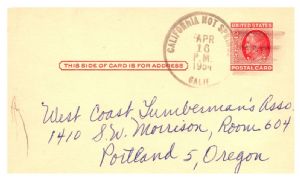 CALIFORNIA HOT SPRINGS
APR
16
P.M.
1954
CALIF.
UNITED STATES
POSTAL CARD
THIS SIDE OF CARD IS FOR ADDRESS
West Coast Lumberman's Asso
1410 S.W. Morrison, Room 604
Portland 5, Oregon